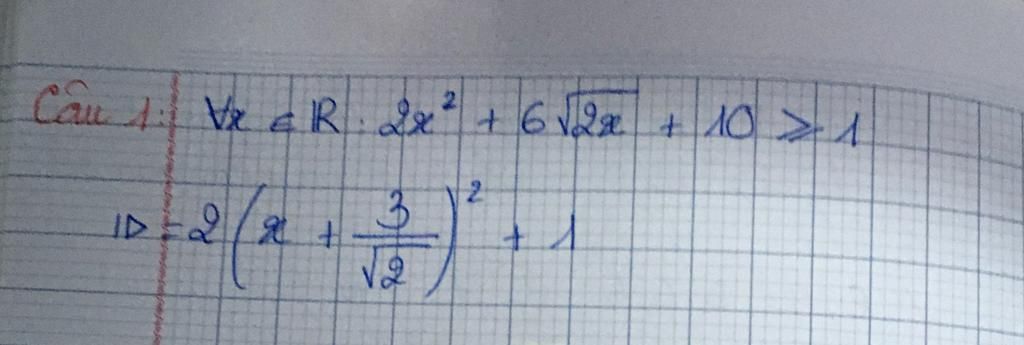 Câu 1: ∀x ∈ R. 2x² + 6√2x + 10 ⩾ 1
= 2(x + 3/√2)² + 1